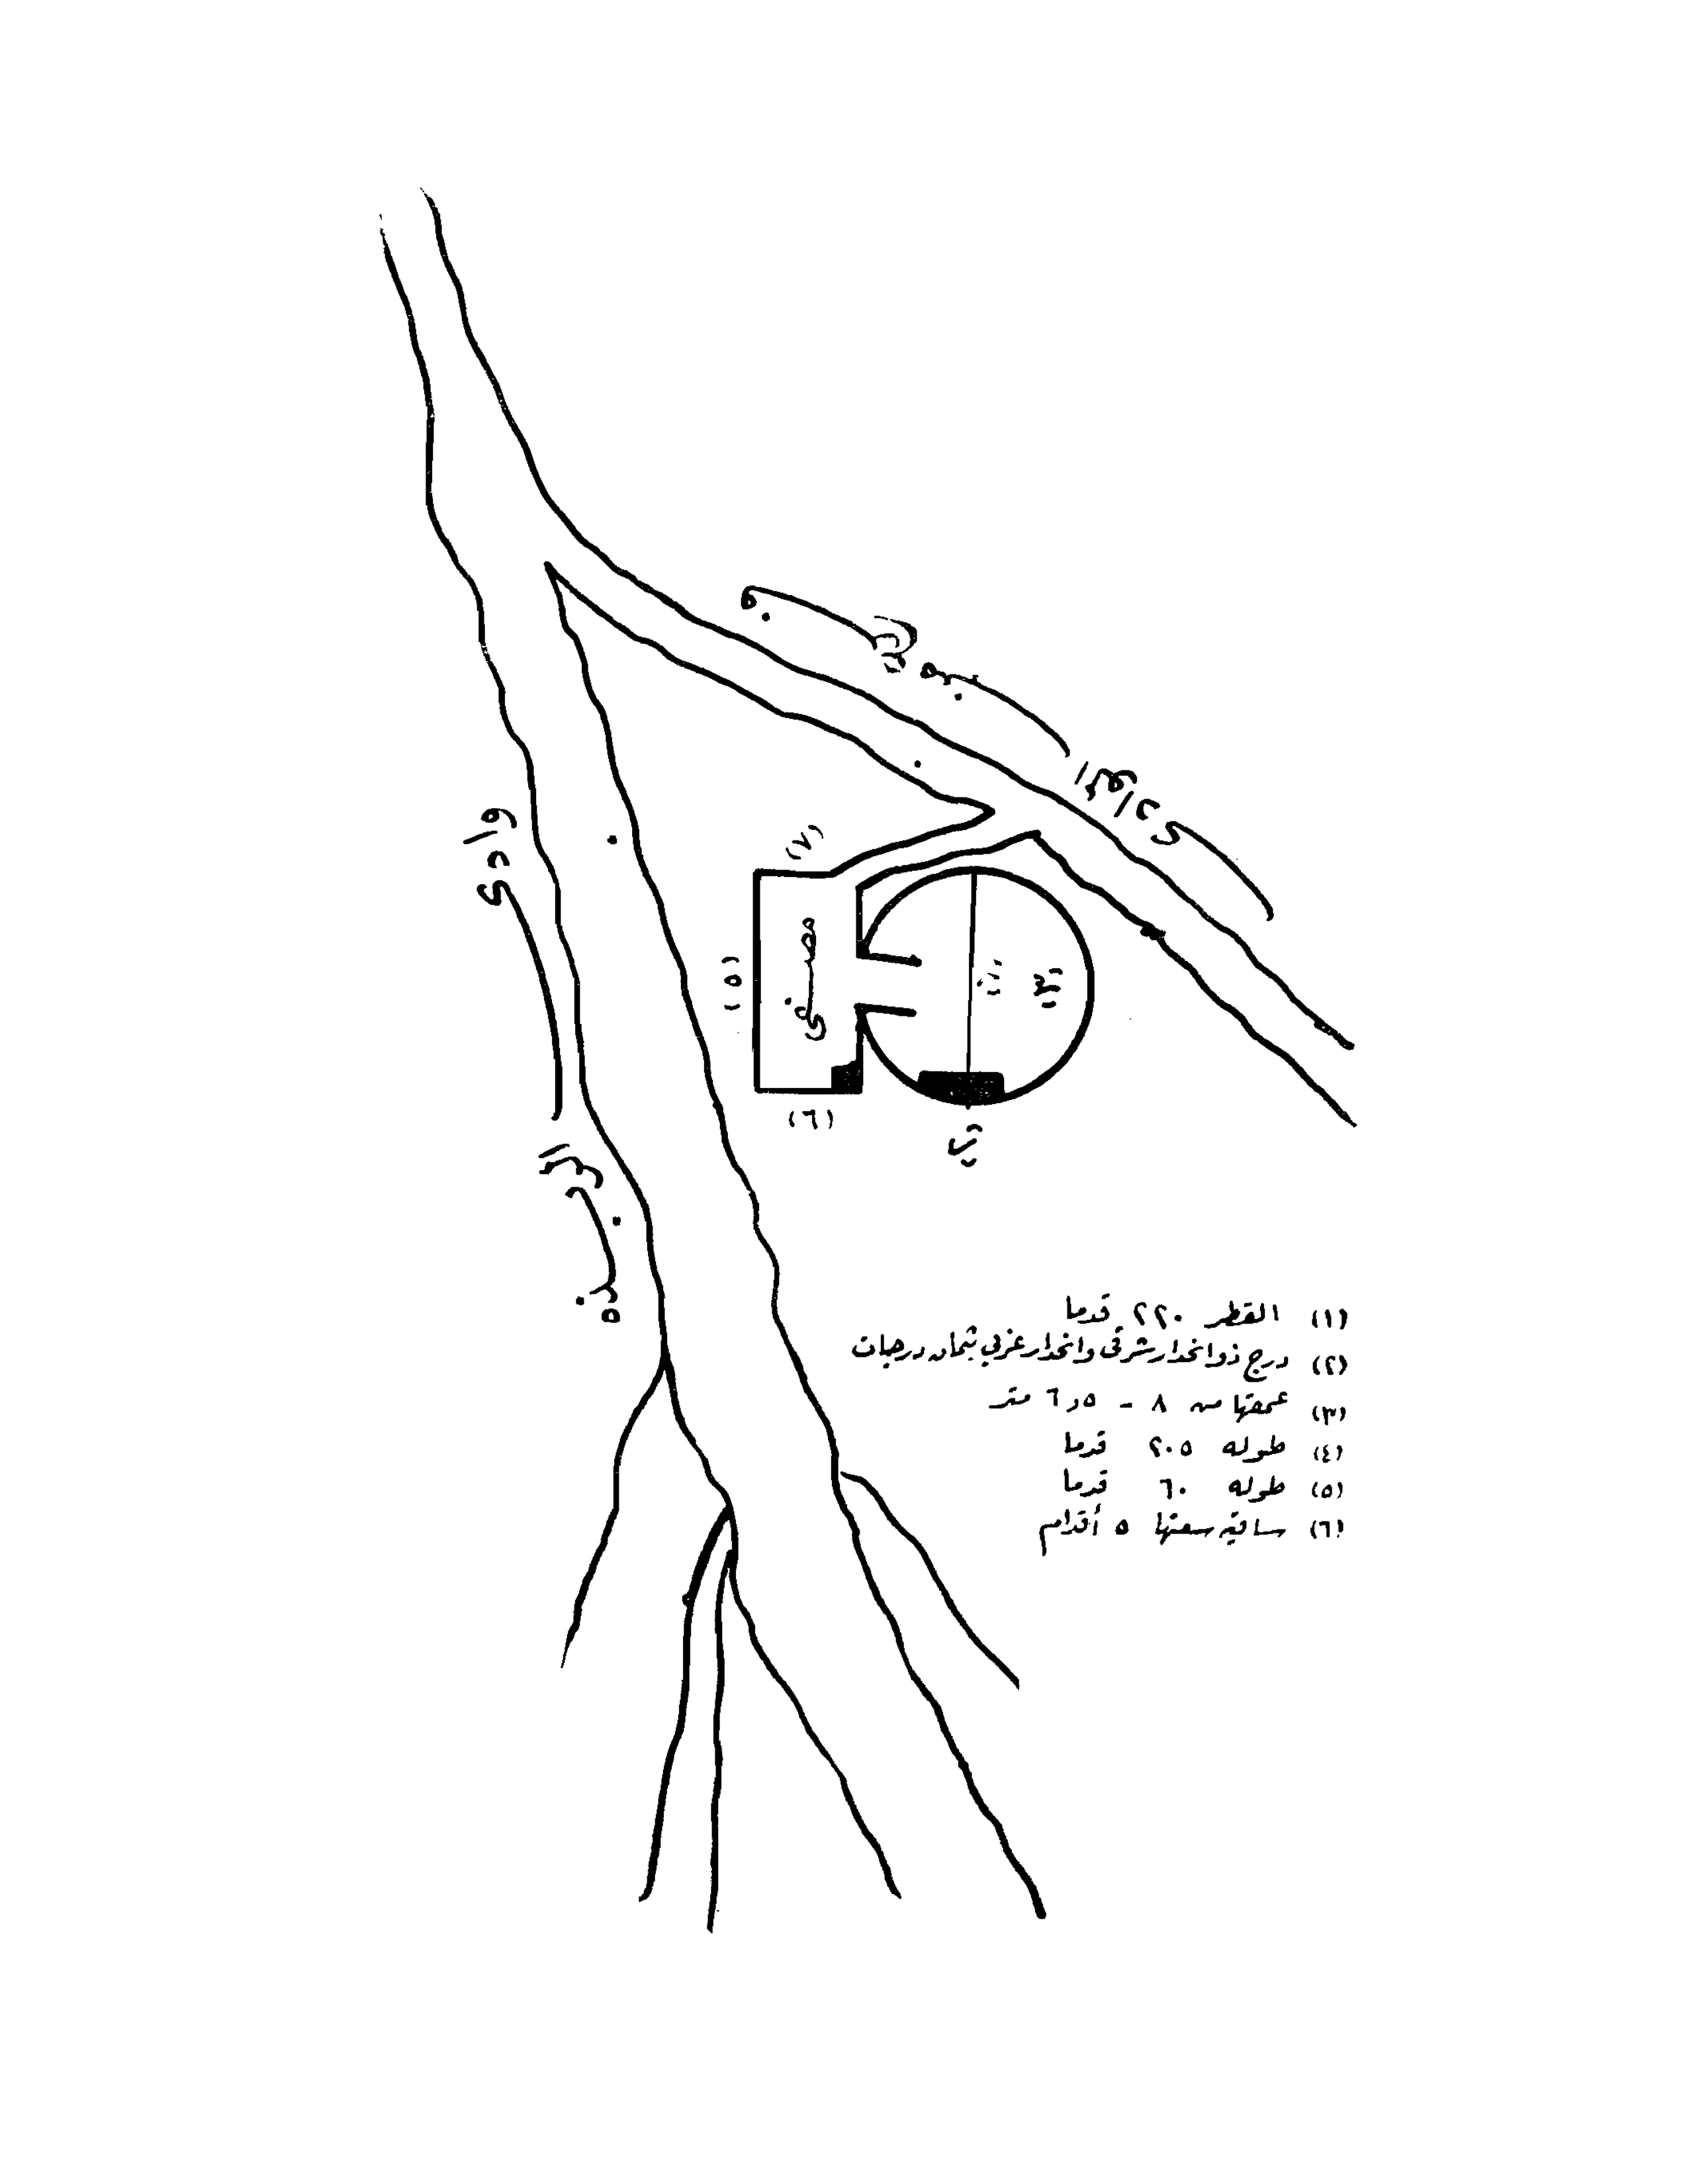 وادي
مصفى
(٥)
(٦)
(٧)
(١)
(٣)
(٢)
(١) القطر ٢٢٠ قدما
(٢) درج ذو انحدار شرقي وانحدار غربي بثمان درجات
(٣) عمقها من ٨ - ٦٫٥ متر
(٤) طوله ٢٠٥ قدما
(٥) طوله ٦٠ قدما
(٦) ساقية سعتها ٥ أقدام